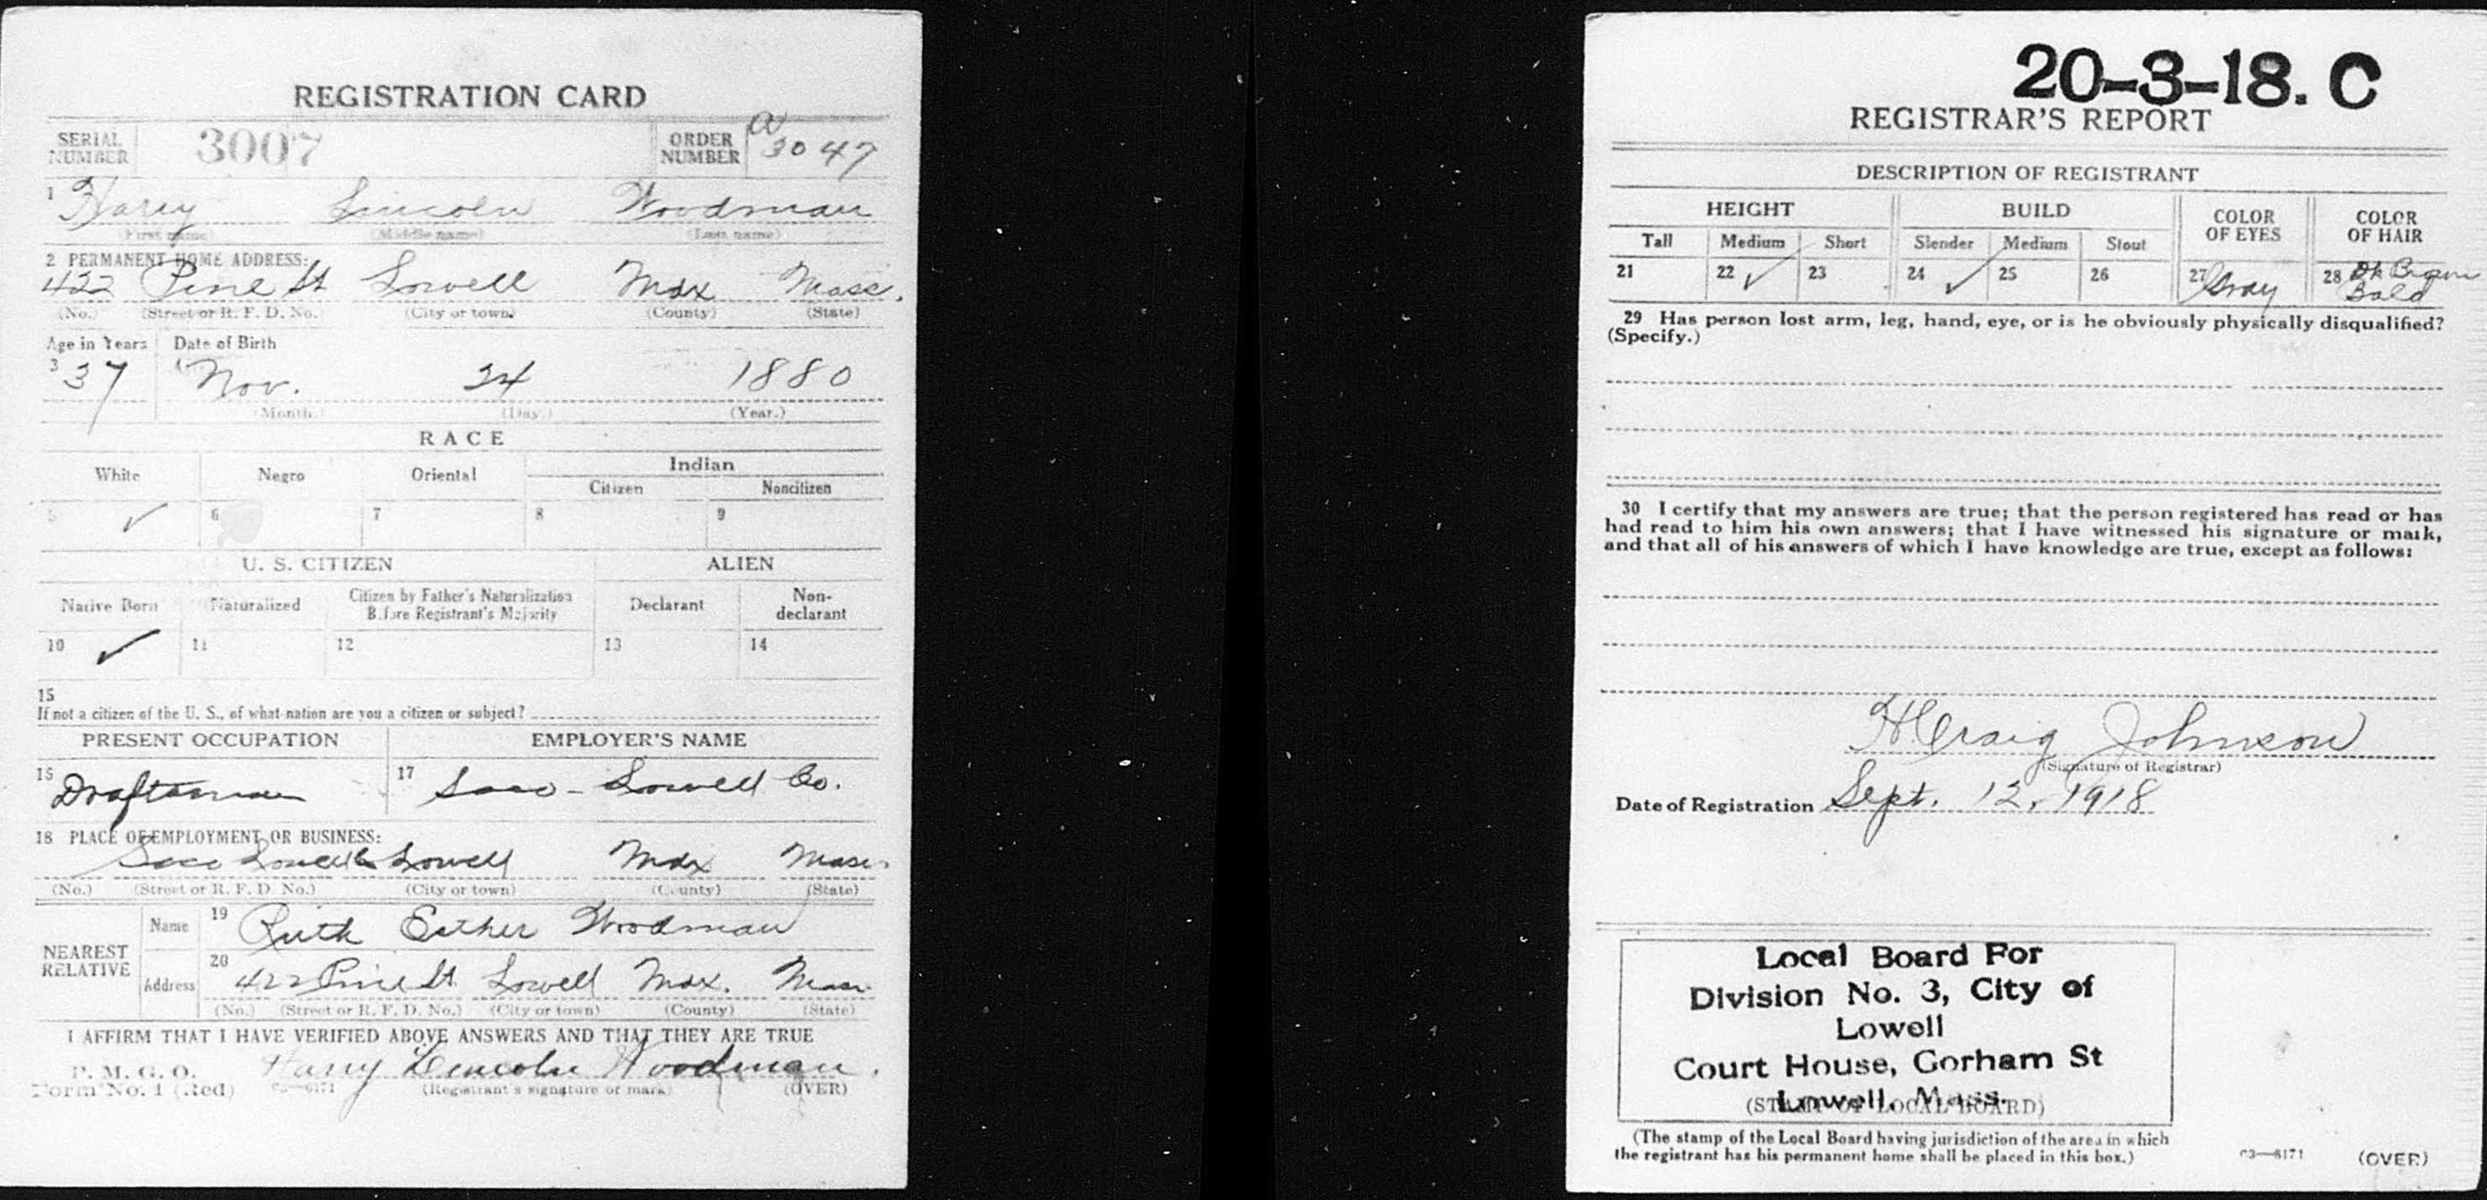 REGISTRATION CARD
SERIAL NUMBER 3007 ORDER NUMBER a 3047
1 Harry Lincoln Woodman
(First name) (Middle name) (Last name)
2 PERMANENT HOME ADDRESS:
422 Pine St Lowell Mdx Mass.
(No.) (Street or R. F. D. No.) (City or town) (County) (State)
Age in Years Date of Birth
3 37 4 Nov. 24 1880
(Month.) (Day.) (Year.)
RACE
White Negro Oriental Indian
Citizen Noncitizen
5 ✓ 6 7 8 9
U. S. CITIZEN ALIEN
Native Born Naturalized Citizen by Father's Naturalization Before Registrant's Majority Declarant Non-declarant
10 ✓ 11 12 13 14
15
If not a citizen of the U. S., of what nation are you a citizen or subject?
PRESENT OCCUPATION EMPLOYER'S NAME
16 Draftsman 17 Saco-Lowell Co.
18 PLACE OF EMPLOYMENT OR BUSINESS:
Saco Lowell Lowell Mdx Mass.
(No.) (Street or R. F. D. No.) (City or town) (County) (State)
NEAREST RELATIVE
Name 19 Ruth Esther Woodman
Address 20 422 Pine St. Lowell Mdx. Mass.
(No.) (Street or R. F. D. No.) (City or town) (County) (State)
I AFFIRM THAT I HAVE VERIFIED ABOVE ANSWERS AND THAT THEY ARE TRUE
P. M. G. O.
Form No. 1 (Red) 03—6171 Harry Lincoln Woodman.
(Registrant's signature or mark) (OVER)
20-3-18. C
REGISTRAR'S REPORT
DESCRIPTION OF REGISTRANT
HEIGHT BUILD COLOR OF EYES COLOR OF HAIR
Tall Medium Short Slender Medium Stout
21 22 ✓ 23 24 ✓ 25 26 27 Gray 28 Dk Brown Bald
29 Has person lost arm, leg, hand, eye, or is he obviously physically disqualified?
(Specify.)
30 I certify that my answers are true; that the person registered has read or has
had read to him his own answers; that I have witnessed his signature or mark,
and that all of his answers of which I have knowledge are true, except as follows:
H Craig Johnson
(Signature of Registrar)
Date of Registration Sept. 12, 1918
Local Board For
Division No. 3, City of
Lowell
Court House, Gorham St
Lowell, Mass.
(STAMP OF LOCAL BOARD)
(The stamp of the Local Board having jurisdiction of the area in which
the registrant has his permanent home shall be placed in this box.)
03—6171 (OVER)